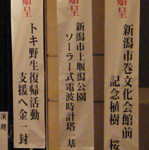 贈呈
新潟市巻文化会館前
記念植樹 桜
贈呈
新潟市上堰潟公園
ソーラー式電波時計塔一基
贈呈
トキ野生復帰活動
支援へ金一封
演題